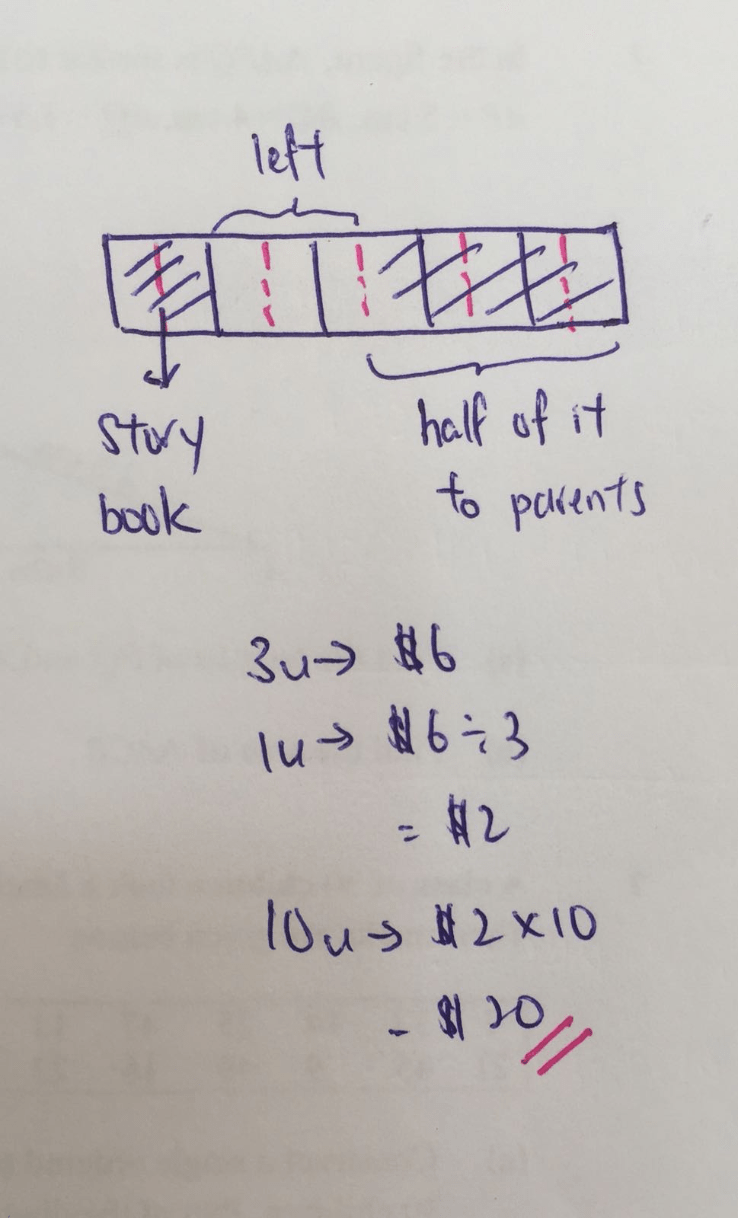 left
story
book
half of it
to parents
3u→ $6
1u→ $6÷3
= $2
10u→ $2×10
= $20